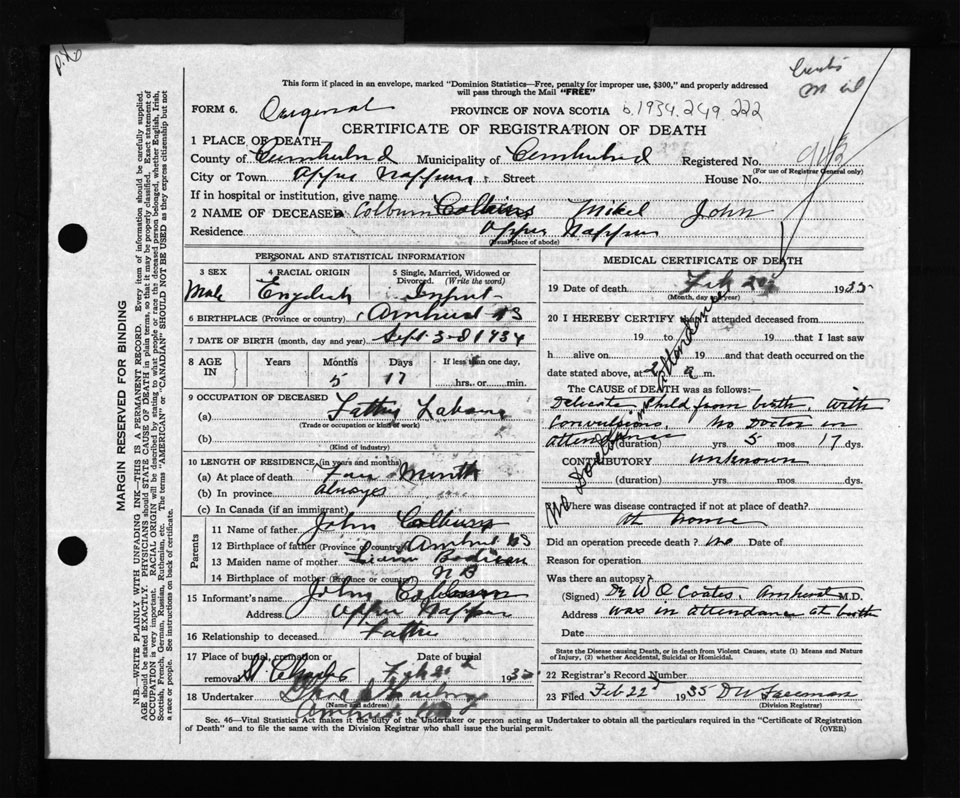 This form if placed in an envelope, marked "Dominion Statistics—Free, penalty for improper use, $300," and properly addressed
will pass through the Mail "FREE"
FORM 6. PROVINCE OF NOVA SCOTIA b.1934.249.222
CERTIFICATE OF REGISTRATION OF DEATH
1 PLACE OF DEATH—
County of Municipality of Registered No.
(For use of Registrar General only)
City or Town Upper Nappan Street House No.
If in hospital or institution, give name
2 NAME OF DECEASED Mikel John
Residence Upper Nappan
(Usual place of abode)
PERSONAL AND STATISTICAL INFORMATION
3 SEX 4 RACIAL ORIGIN 5 Single, Married, Widowed or
Divorced. (Write the word)
Male English Infant
6 BIRTHPLACE (Province or country) Amherst NS
7 DATE OF BIRTH (month, day and year) Sept 3rd 1934
8 AGE IN Years Months Days If less than one day,
5 17 hrs. or min.
9 OCCUPATION OF DECEASED
(a)
(Trade or occupation or kind of work)
(b)
(Kind of industry)
10 LENGTH OF RESIDENCE (in years and months)
(a) At place of death Month
(b) In province always
(c) In Canada (if an immigrant)
Parents
11 Name of father John
12 Birthplace of father (Province or country) Amherst NS
13 Maiden name of mother
14 Birthplace of mother (Province or country) NB
15 Informant's name John
Address Upper Nappan
16 Relationship to deceased Father
17 Place of burial, cremation or Date of burial
removal St Charles 1935
18 Undertaker
(Name and address)
Amherst
MEDICAL CERTIFICATE OF DEATH
19 Date of death Feb 1935
(Month, day and year)
20 I HEREBY CERTIFY that I attended deceased from
19 to 19 that I last saw
h alive on 19 and that death occurred on the
date stated above, at m.
The CAUSE OF DEATH was as follows:—
Delicate child from birth, with
convulsions. No Doctor in
attendance (duration) yrs. 5 mos. 17 dys.
CONTRIBUTORY unknown
(duration) yrs. mos. dys.
No Doctor in attendance
Where was disease contracted if not at place of death?
At home
Did an operation precede death? no Date of
Reason for operation
Was there an autopsy?
(Signed) Dr W O Coates. Amherst M.D.
Address was in attendance at birth
Date
State the Disease causing Death, or in death from Violent Causes, state (1) Means and Nature
of Injury, (2) whether Accidental, Suicidal or Homicidal.
22 Registrar's Record Number
23 Filed Feb 22 1935
(Division Registrar)
Sec. 46—Vital Statistics Act makes it the duty of the Undertaker or person acting as Undertaker to obtain all the particulars required in the "Certificate of Registration
of Death" and to file the same with the Division Registrar who shall issue the burial permit. (OVER)
MARGIN RESERVED FOR BINDING
N.B.—WRITE PLAINLY WITH UNFADING INK—THIS IS A PERMANENT RECORD. Every item of information should be carefully supplied.
AGE should be stated EXACTLY. PHYSICIANS should STATE CAUSE OF DEATH in plain terms, so that it may be properly classified. Exact statement of
OCCUPATION is very important. RACIAL ORIGIN will be described by stating to what people or race the deceased person belonged, whether English, Irish,
Scottish, French, German, Russian, Ruthenian, etc. The terms "AMERICAN" or "CANADIAN" SHOULD NOT BE USED as they express citizenship but not
a race or people. See instructions on back of certificate.